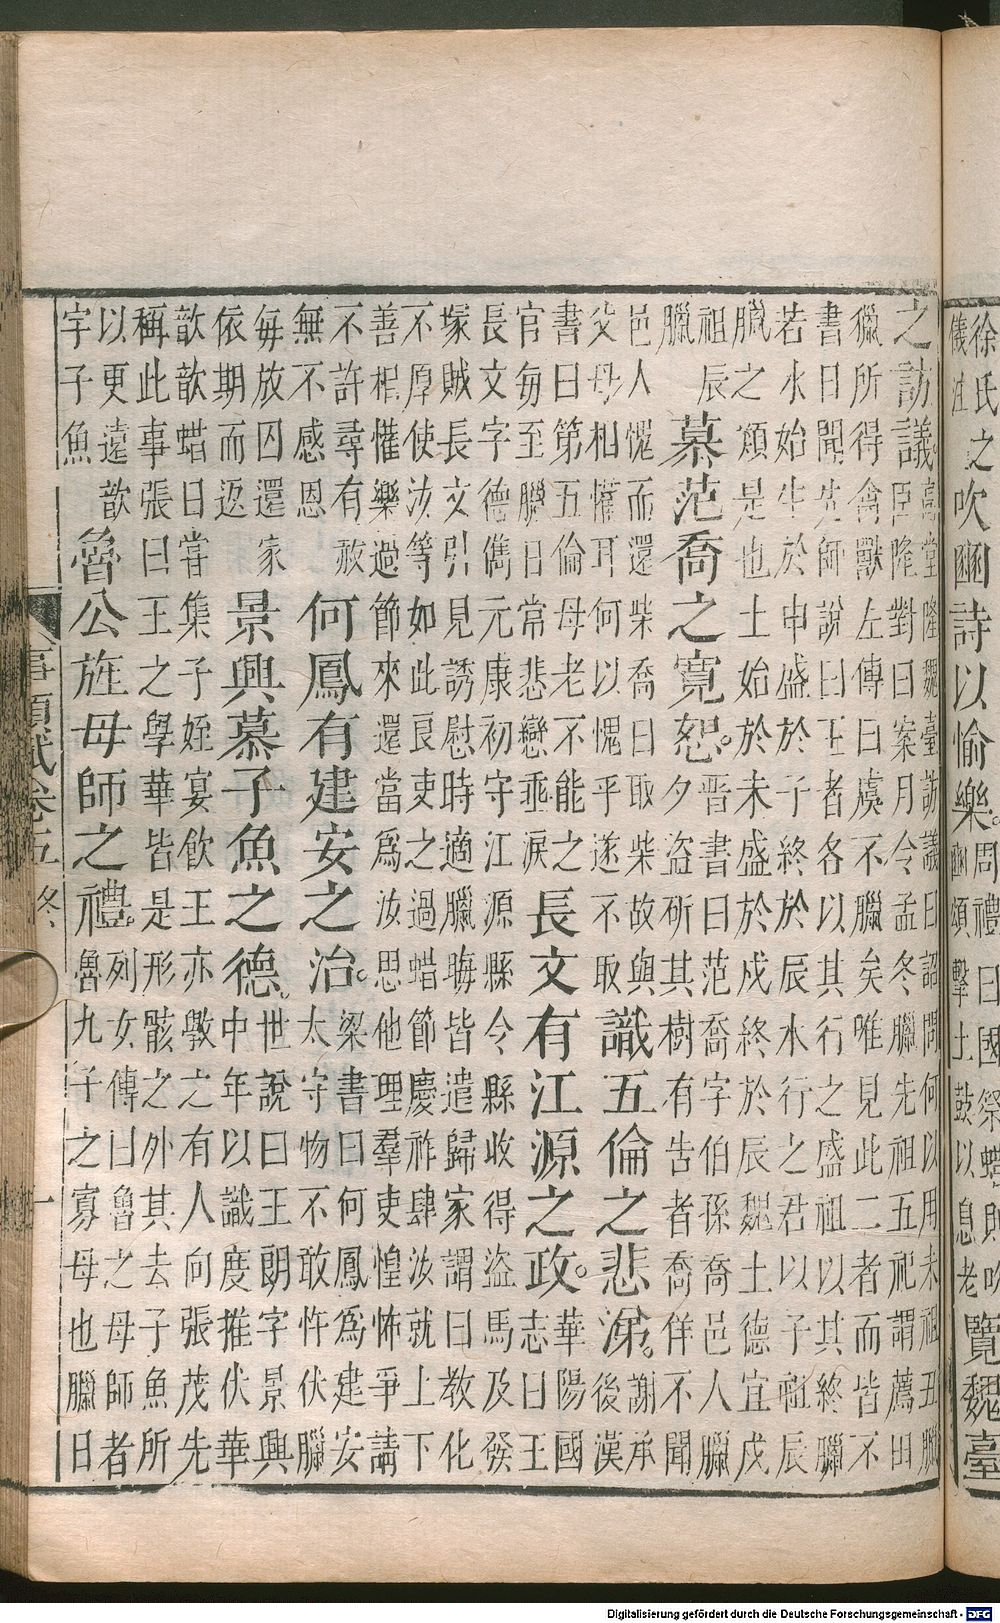 徐氏之
儀注
吹豳詩以愉樂。
周禮曰國祭蜡則吹
豳頌擊土鼓以息老
覽魏臺
之訪議。
高堂隆魏臺訪議曰詔問何以用未祖丑臘
臣隆對曰案月令孟冬臘先祖五祀謂薦田
獵所得禽獸左傳曰虞不臘矣唯見此二者而皆不
書曰聞先師說曰王者各以其行之盛祖以其終臘
若水始生於申盛於子終於辰水行之君以子祖辰
臘之類是也土始於未盛於戌終於辰魏土德宜戌
祖辰
臘
慕范喬之寬恕。
晉書曰范喬字伯孫喬邑人臘
夕盜斫其樹有告者喬佯不聞
邑人愧而還柴喬曰取柴故與
父母相懽耳何以愧乎遂不取
識五倫之悲深。
謝承
後漢
書曰第五倫母老不能之
官每至臘日常悲戀乖淚
長文有江源之政。
華陽國
志曰王
長文字德儁元康初守江源縣令縣收得盜馬及發
塚賊長文引見誘慰時適臘晦皆遣歸家謂曰教化
不厚使汝等如此良吏之過蜡節慶祚肆汝就上下
善相懽樂過節來還當爲汝思他理羣吏惶怖爭請
不許尋有赦
無不感恩
何鳳有建安之治。
梁書曰何鳳爲建安
太守物不敢忤伏臘
每放囚還家
依期而返
景興慕子魚之德。
世說曰王朗字景興
中年以識度推伏華
歆歆蜡日嘗集子姪宴飲王亦斆之有人向張茂先
稱此事張曰王之學華皆是形骸之外其去子魚所
以更遠歆
字子魚
魯公旌母師之禮。
列女傳曰魯之母師者
魯九子之寡母也臘日
事類賦卷五 終 十
Digitalisierung gefördert durch die Deutsche Forschungsgemeinschaft - DFG